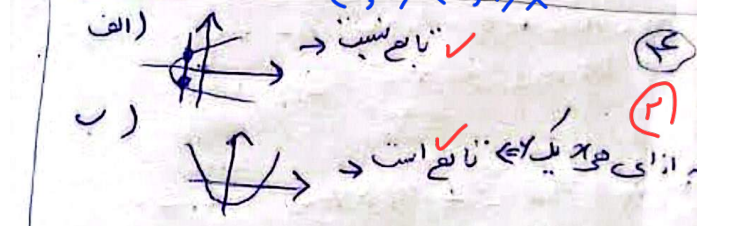 الف) تابع نیست ✓
۴
۲
ب) به ازای هر x یک y ⇐ تابع است ✓